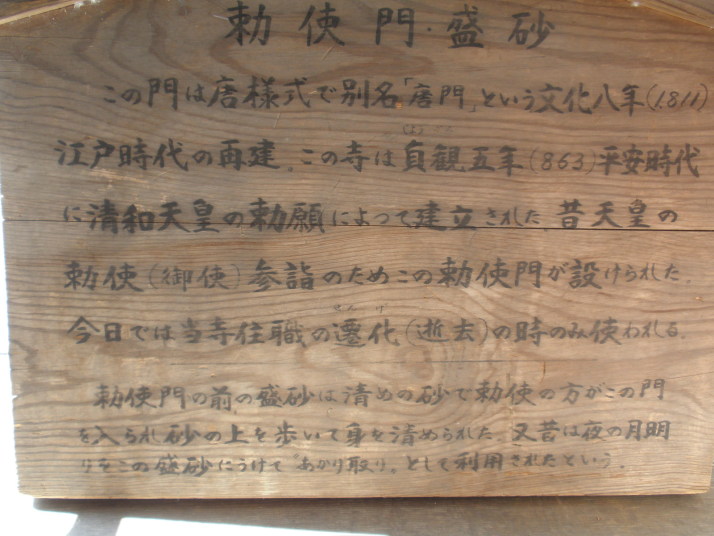 勅使門・盛砂
この門は唐様式で別名「唐門」という文化八年(1811)
江戸時代の再建。この寺は貞観五年(863)平安時代
に清和天皇の勅願によって建立された昔天皇の
勅使(御使)参詣のためこの勅使門が設けられた。
せんげ
今日では当寺住職の遷化(逝去)の時のみ使われる。
勅使門の前の盛砂は清めの砂で勅使の方がこの門
を入られ砂の上を歩いて身を清められた。又昔は夜の月明
りをこの盛砂にうけて"あかり取り"として利用されたという。